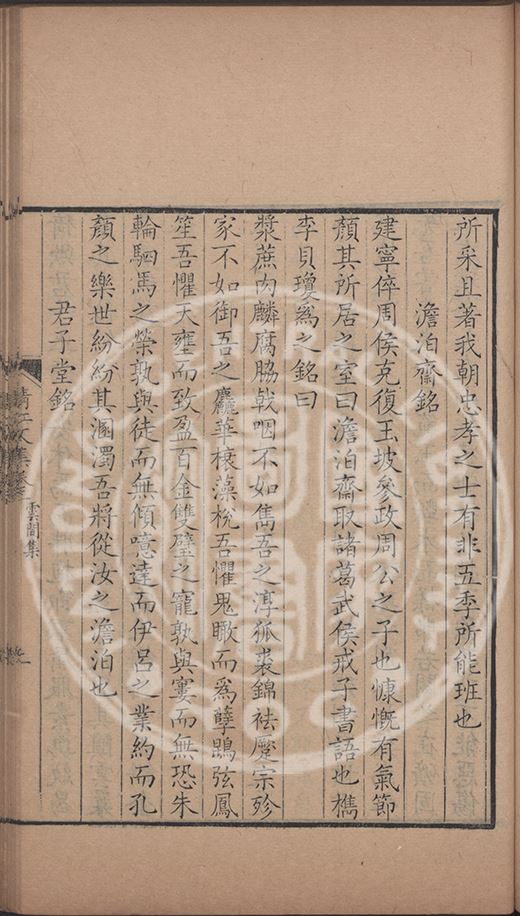 所采且著我朝忠孝之士有非五季所能班也
澹泊齋銘
建寧倅周侯克復玉坡參政周公之子也慷慨有氣節
顏其所居之室曰澹泊齋取諸葛武侯戒子書語也檇
李貝瓊爲之銘曰
漿蔗肉麟腐脇戟咽不如雋吾之淳狐裘錦祛蹙宗殄
家不如御吾之麤華榱藻梲吾懼鬼瞰而爲孽鵾弦鳳
笙吾懼天壅而致盈百金雙璧之寵孰與窶而無恐朱
輪駟馬之榮孰與徒而無傾噫達而伊呂之業約而孔
顏之樂世紛紛其溷濁吾將從汝之澹泊也
君子堂銘
清江文集卷
雲間集